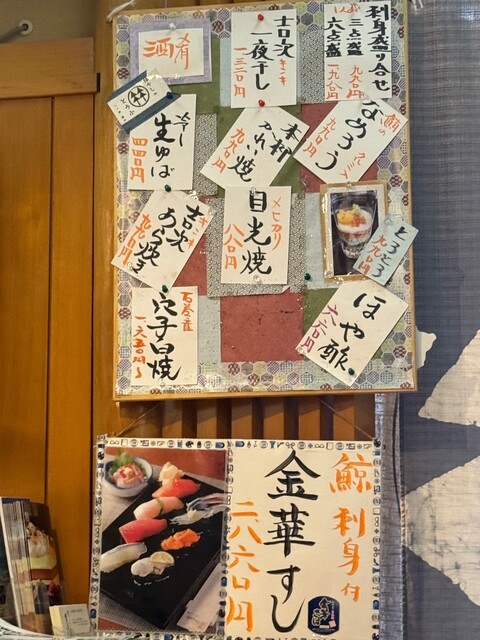 刺身盛り合せ
三点盛 九九〇円
六点盛 一九八〇円
吉次 キンキ
一夜干し
一三二〇円
酒肴
鯵の
なめろう
九九〇円
本村かれい焼
九九〇円
冷し
生ゆば
四四〇円
とろとろ
九九〇円
メヒカリ
目光焼
八八〇円
吉次 キンキ
あら焼き
九九〇円
ほや酢
六六〇円
石巻産
穴子白焼
一六五〇円〜
鯨刺身付
金華すし
二八六〇円